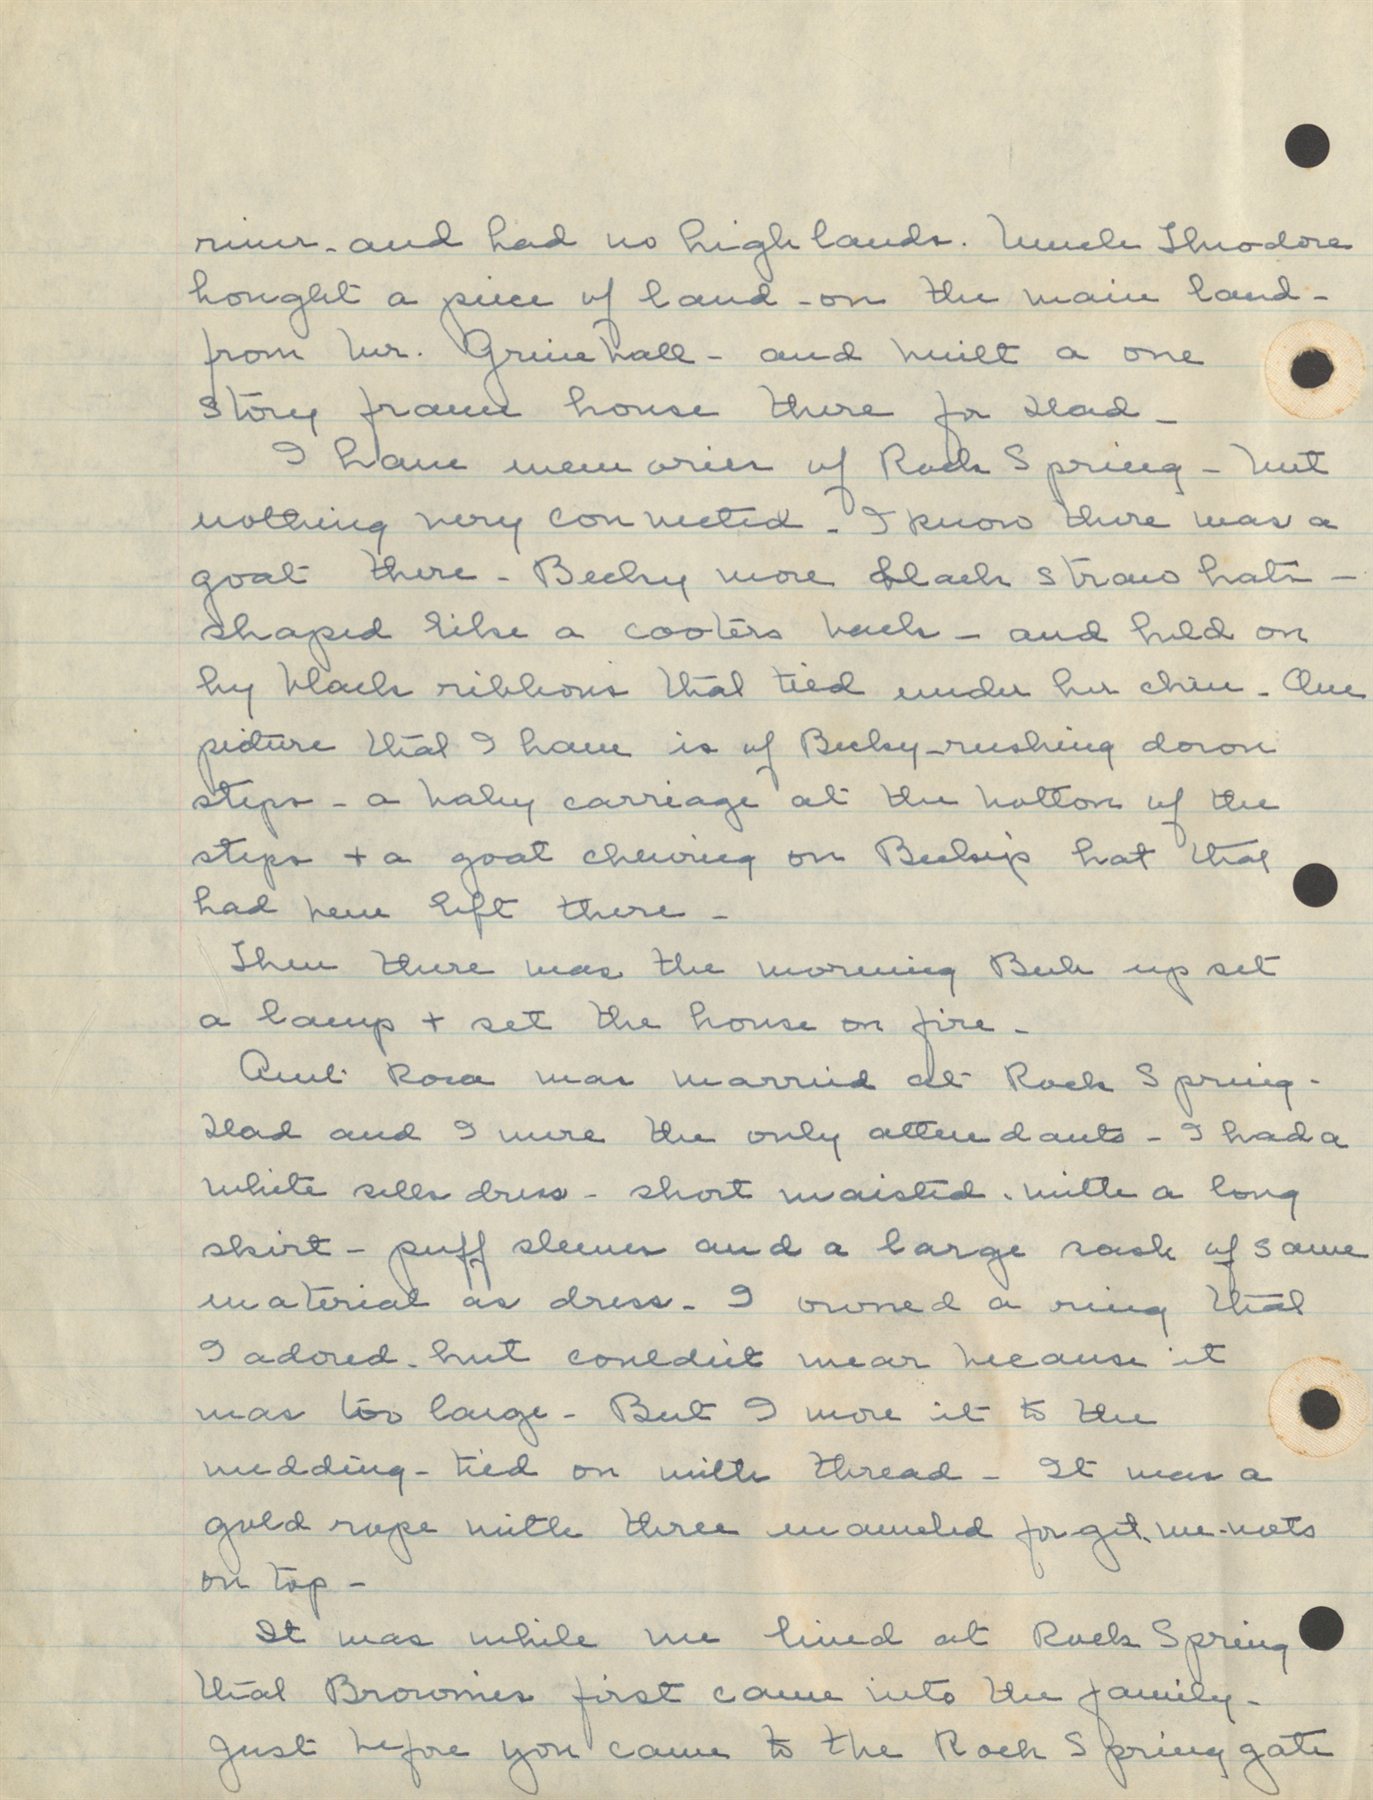 river - and had no high lands. Uncle Theodore
bought a piece of land - on the main land -
from Mr. Grinehall - and built a one
story frame house there for Dad -
I have memories of Rock Spring - but
nothing very connected - I know there was a
goat there - Becky wore black straw hats -
shaped like a cooters back - and held on
by black ribbons that tied under her chin - One
picture that I have is of Becky - rushing down
steps - a baby carriage at the bottom of the
steps + a goat chewing on Becky's hat that
had been left there -
Then there was the morning Beck up set
a lamp + set the house on fire -
Aunt Rosa was married at Rock Spring -
Dad and I were the only attendants - I had a
white silk dress - short waisted - with a long
skirt - puff sleeves and a large sash of same
material as dress - I owned a ring that
I adored - but couldn't wear because it
was too large - But I wore it to the
wedding - tied on with thread - It was a
gold rope with three enameled for get-me-nots
on top -
It was while we lived at Rock Spring
that Brownies first came into the family -
Just before you came to the Rock Spring gate